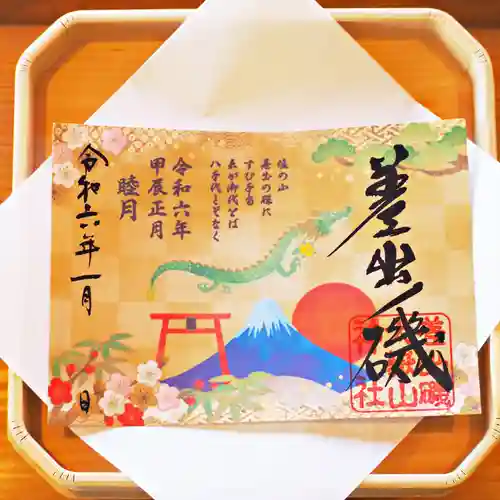 差出磯
塩の山
差出の磯に
すむ千鳥
君が御代をば
八千代とぞなく
令和六年
甲辰正月
睦月
令和六年一月 日